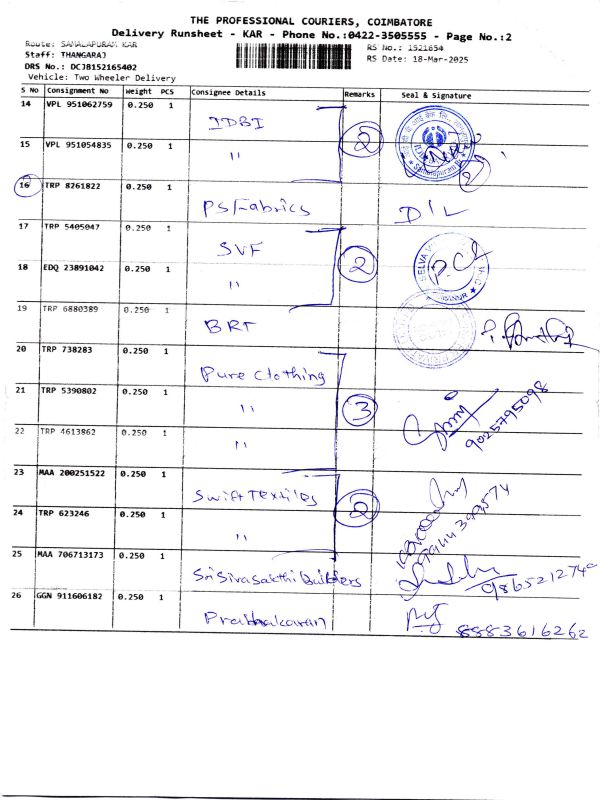 THE PROFESSIONAL COURIERS, COIMBATORE
Delivery Runsheet - KAR - Phone No.:0422-3505555 - Page No.:2
Route: SAMALAPURAM KAR
Staff: THANGARAJ
DRS No.: DCJB152165402
Vehicle: Two Wheeler Delivery
RS No.: 1521654
RS Date: 18-Mar-2025
S No Consignment No Weight PCS Consignee Details Remarks Seal & Signature
14 VPL 951062759 0.250 1 IDBI
15 VPL 951054835 0.250 1 " 2
16 TRP 8261822 0.250 1 PS Fabrics D/L
17 TRP 5405047 0.250 1 SVF
18 EDQ 23891042 0.250 1 " 2
19 TRP 6880389 0.250 1 BRT
20 TRP 738283 0.250 1 Pure Clothing
21 TRP 5390802 0.250 1 " 3 9025795098
22 TRP 4613862 0.250 1 "
23 MAA 200251522 0.250 1 Swift Textiles 2
24 TRP 623246 0.250 1 "
25 MAA 706713173 0.250 1 Sri Siva Sakthi Builders
26 GGN 911606182 0.250 1 Prabhakaran 8883616262